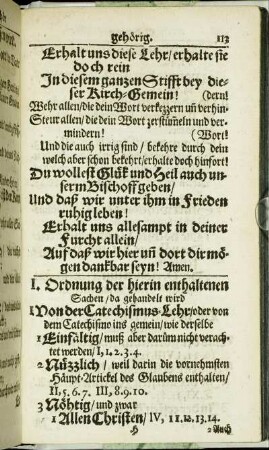 gehörig. 113
Erhalt uns diese Lehr/erhalte sie
doch rein
In diesem ganzen Stifft bey die-
ser Kirch-Gemein! (dern!
Wehr allen/die dein Wort verkezzern uñ verhin-
Steur allen/die dein Wort zerstüm̃eln und ver-
mindern! (Wort!
Und die auch irrig sind/ bekehre durch dein
welch aber schon bekehrt/erhalte doch hinfort!
Du wollest Glük und Heil auch un-
serm Bischoff geben/
Und daß wir unter ihm in Frieden
ruhig leben!
Erhalt uns allesampt in deiner
Furcht allein/
Auf daß wir hier uñ dort dir mö-
gen dankbar seyn! Amen.
I. Ordnung der hierin enthaltenen
Sachen/ da gehandelt wird
1 Von der Catechismus-Lehr/oder von
dem Catechismo ins gemein/ wie derselbe
1 Einfältig/ muß aber darüm nicht verach-
tet werden/ I, 1. 2. 3. 4.
2 Nüzzlich/ weil darin die vornehmsten
Häupt-Artickel des Glaubens enthalten/
II, 5. 6. 7. III, 8. 9. 10.
3 Nöhtig/ und zwar
1 Allen Christen/ IV, 11. 12. 13. 14.
H 2 Auch